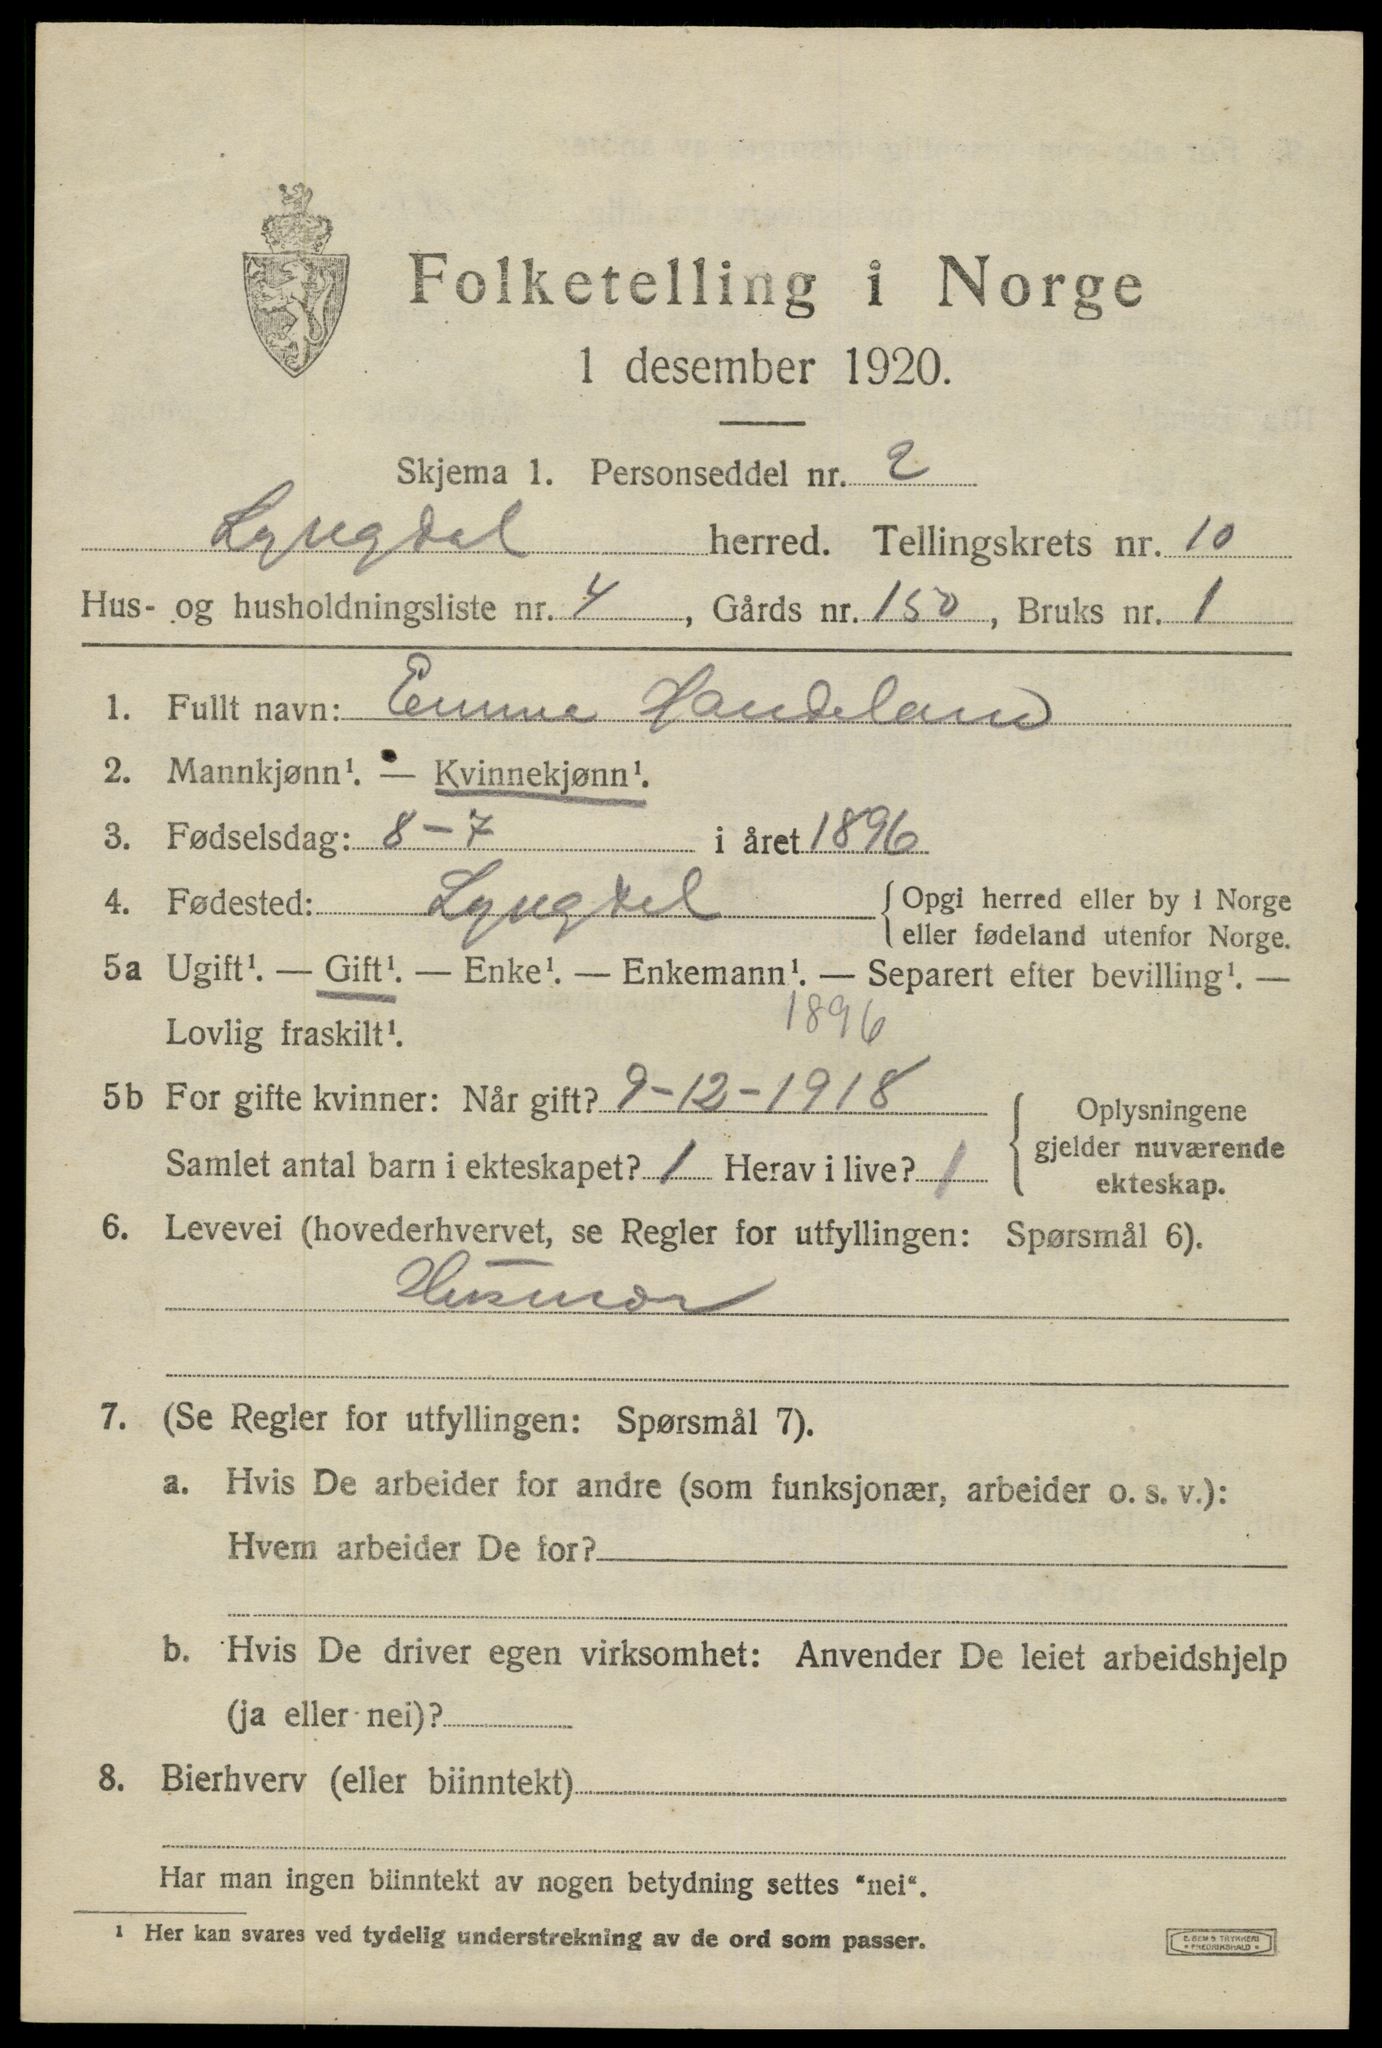 Folketelling i Norge
1 desember 1920.
Skjema 1. Personseddel nr. 2
Lyngdal herred. Tellingskrets nr. 10
Hus- og husholdningsliste nr. 4, Gårds nr. 150, Bruks nr. 1
1. Fullt navn: Emma Handeland
2. Mannkjønn¹. — Kvinnekjønn¹.
3. Fødselsdag: 8-7 i året 1896
4. Fødested: Lyngdal { Opgi herred eller by i Norge
eller fødeland utenfor Norge.
5a Ugift¹. — Gift¹. — Enke¹. — Enkemann¹. — Separert efter bevilling¹. —
Lovlig fraskilt¹. 1896
5b For gifte kvinner: Når gift? 9-12-1918 { Oplysningene
gjelder nuværende
Samlet antal barn i ekteskapet? 1 Herav i live? 1 ekteskap.
6. Levevei (hovederhvervet, se Regler for utfyllingen: Spørsmål 6).
Husmor
7. (Se Regler for utfyllingen: Spørsmål 7).
a. Hvis De arbeider for andre (som funksjonær, arbeider o. s. v.):
Hvem arbeider De for?
b. Hvis De driver egen virksomhet: Anvender De leiet arbeidshjelp
(ja eller nei)?
8. Bierhverv (eller biinntekt)
Har man ingen biinntekt av nogen betydning settes "nei".
¹ Her kan svares ved tydelig understrekning av de ord som passer.
E. SEM'S TRYKKERI
* FREDRIKSHALD *